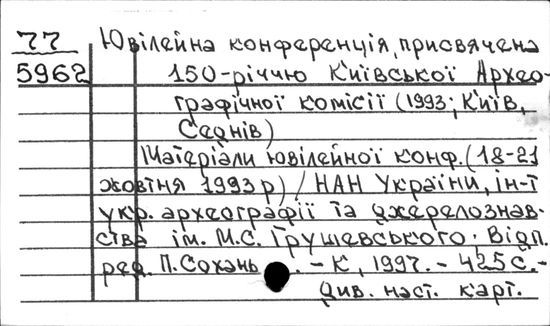 77 Ювілейна конференція, присвячена
5962 150-річчю Київської Архео-
графічної комісії (1993; Київ,
Седнів)
Матеріали ювілейної конф. (18-21
жовтня 1993 р) / НАН України, ін-т
укр. археографії та джерелознав-
ства ім. М.С. Грушевського; Відп.
ред. П. Сохань. - К, 1997. - 425 с. -
Див. наст. карт.